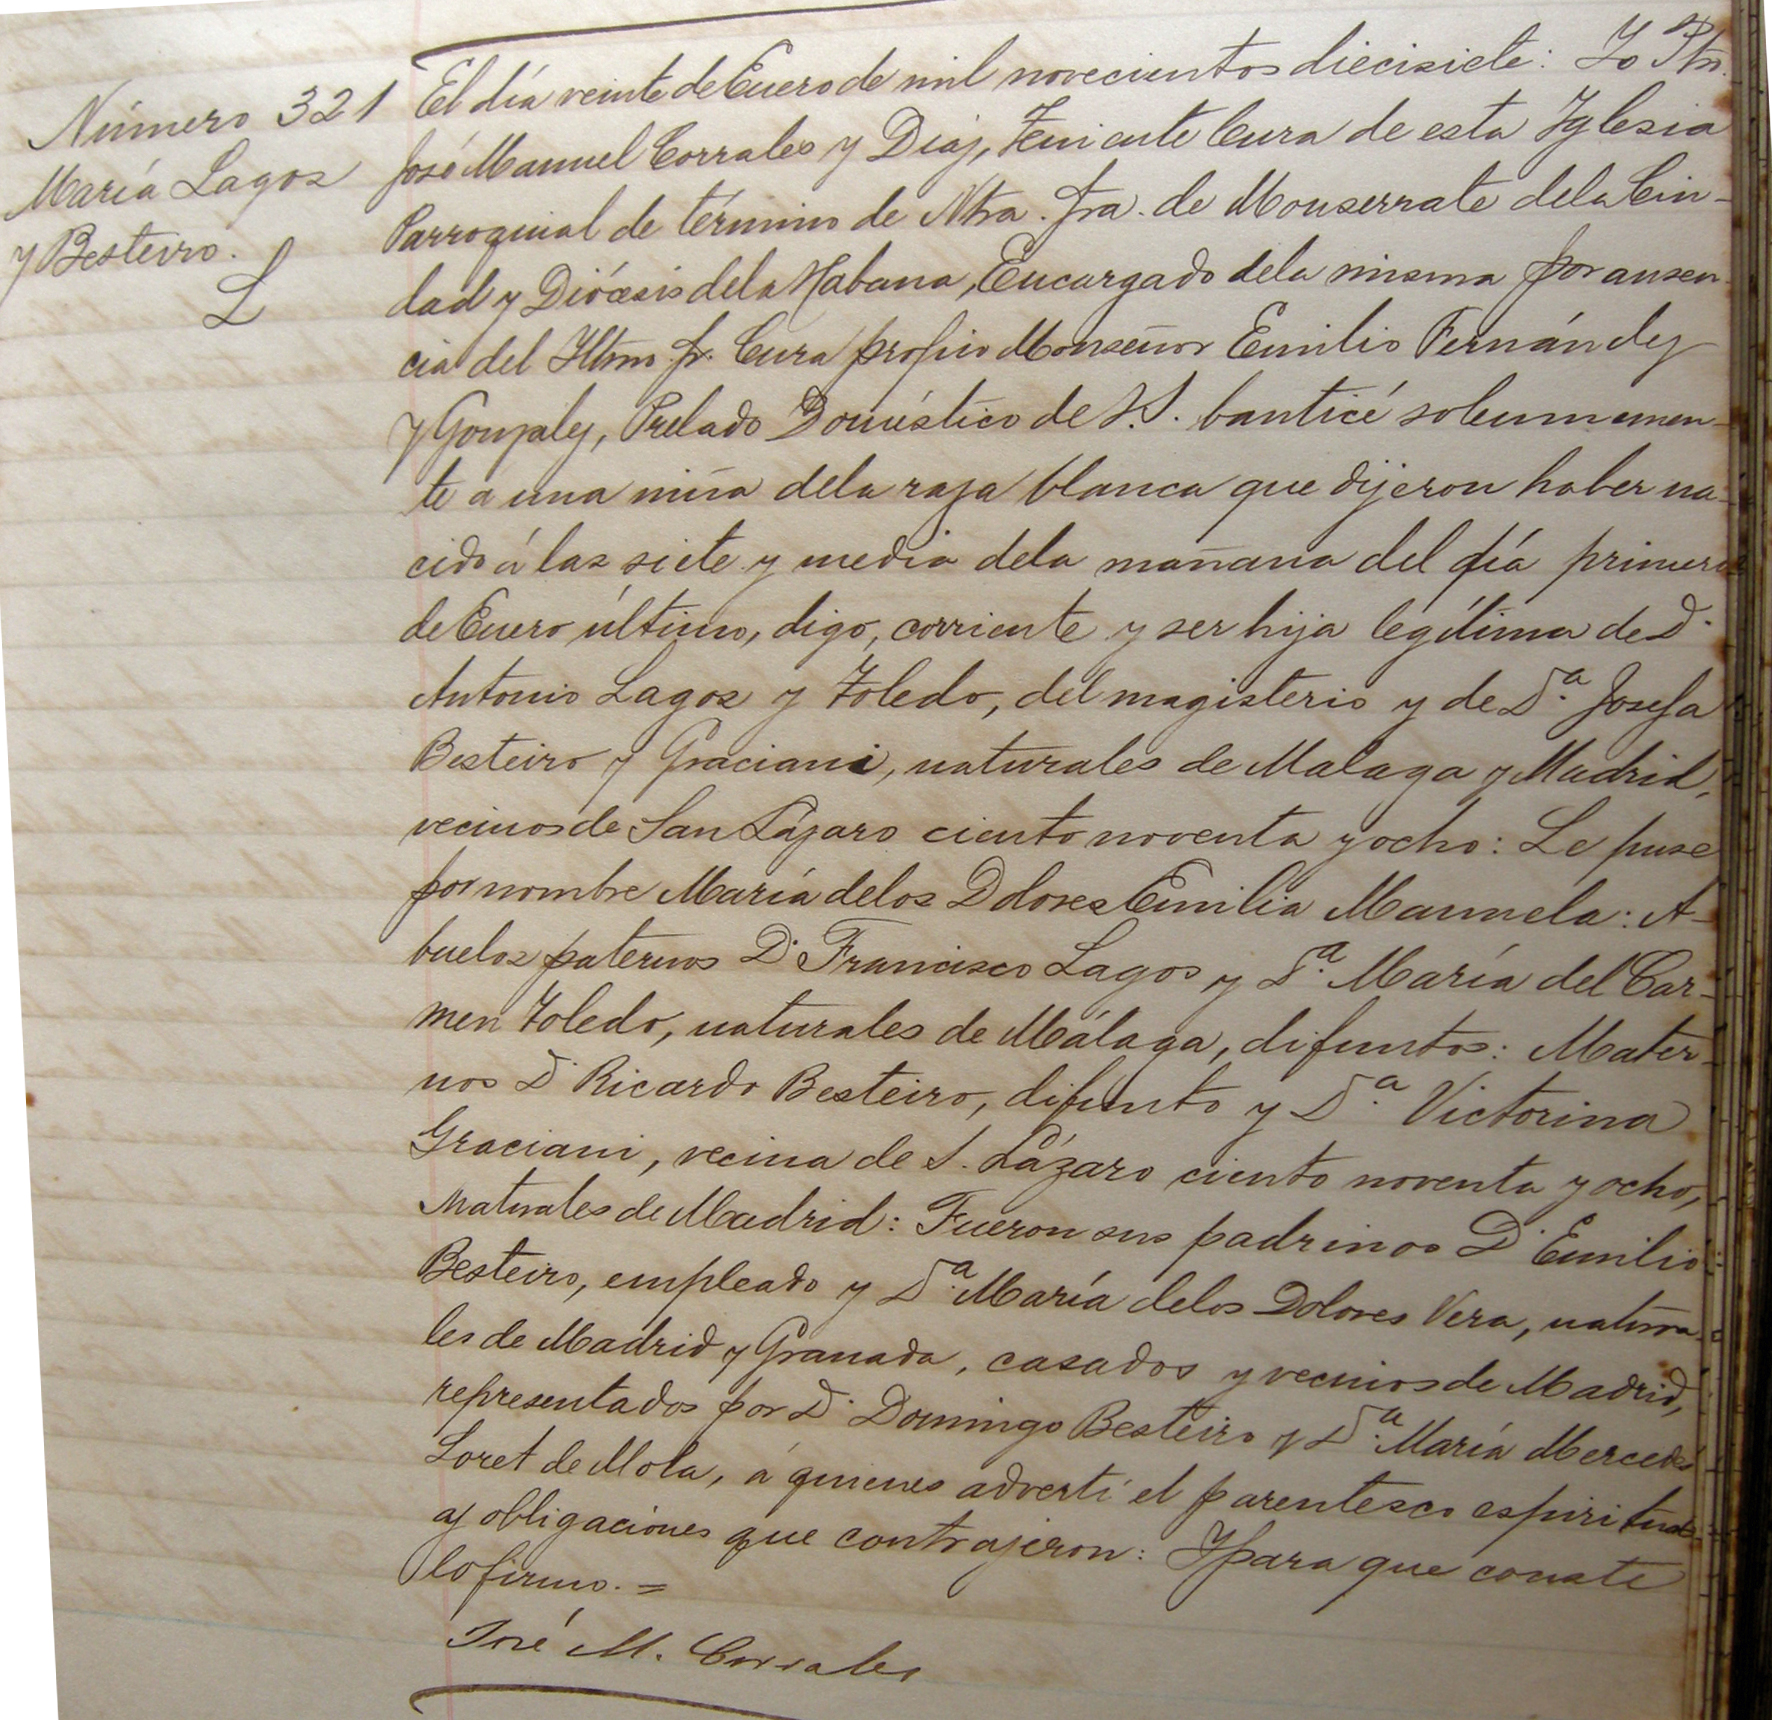 Número 321
María Lagos
y Besteiro.
L
El día veinte de Enero de mil novecientos diecisiete: Yo Pbro.
José Manuel Corrales y Diaz, Teniente Cura de esta Yglesia
Parroquial de término de Ntra. Sra. de Monserrate dela Ciu-
dad y Diócesis dela Habana, Encargado dela misma por ausen-
cia del Yltmo. Sr. Cura propio Monseñor Emilio Fernández
y Gonzalez, Prelado Doméstico de S.S. bauticé solemnemen-
te a una niña dela raza blanca que dijeron haber na-
cido á las siete y media dela mañana del día primero
de Enero último, digo, corriente y ser hija legítima de D.
Antonio Lagos y Toledo, del magisterio y de D.ª Josefa
Besteiro y Graciani, naturales de Malaga y Madrid,
vecinos de San Lázaro ciento noventa y ocho: Le puse
por nombre María delos Dolores Emilia Manuela: A-
buelos paternos D. Francisco Lagos y D.ª María del Car-
men Toledo, naturales de Málaga, difuntos: Mater-
nos D. Ricardo Besteiro, difunto y D.ª Victorina
Graciani, vecina de S. Lázaro ciento noventa y ocho,
Naturales de Madrid: Fueron sus padrinos D. Emilio
Besteiro, empleado y D.ª María delos Dolores Vera, natura-
les de Madrid y Granada, casados y vecinos de Madrid,
representados por D. Domingo Besteiro y D.ª María Mercedes
Loret de Mola, á quienes advertí el parentesco espiritual
y obligaciones que contrajeron: Y para que conste
lo firmo. =
José M. Corrales